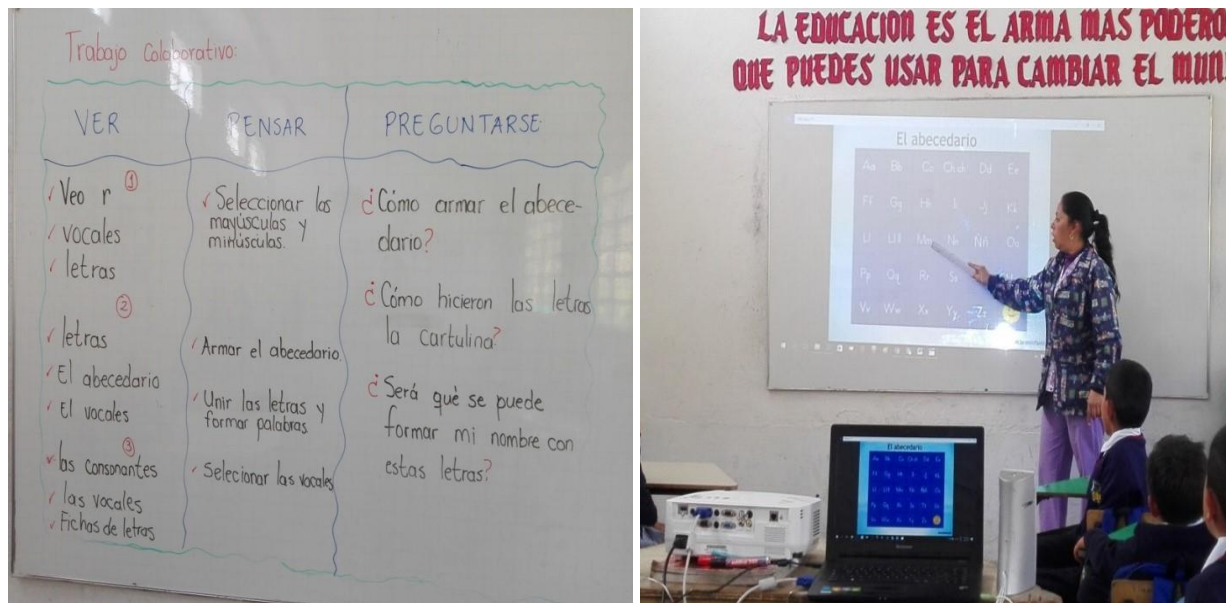 Trabajo Colaborativo:
VER
PENSAR
PREGUNTARSE
①
✓ Veo r
✓ vocales
✓ letras
②
✓ letras
✓ El abecedario
✓ El vocales
③
✓ las consonantes
✓ las vocales
✓ Fichas de letras
✓ Seleccionar las
mayúsculas y
minúsculas.
✓ Armar el abecedario.
✓ Unir las letras y
formar palabras
✓ Selecionar las vocales
¿Cómo armar el abece-
dario?
¿Cómo hicieron las letras
la cartulina?
¿Será què se puede
formar mi nombre con
estas letras?
LA EDUCACION ES EL ARMA MAS PODERO
QUE PUEDES USAR PARA CAMBIAR EL MUN
El abecedario
Aa Bb Cc Ch ch Dd Ee
Ff Gg Hh Ii Jj Kk
Ll Ll ll Mm Nn Ññ Oo
Pp Qq Rr Ss
Vv Ww Xx Yy Zz
El abecedario